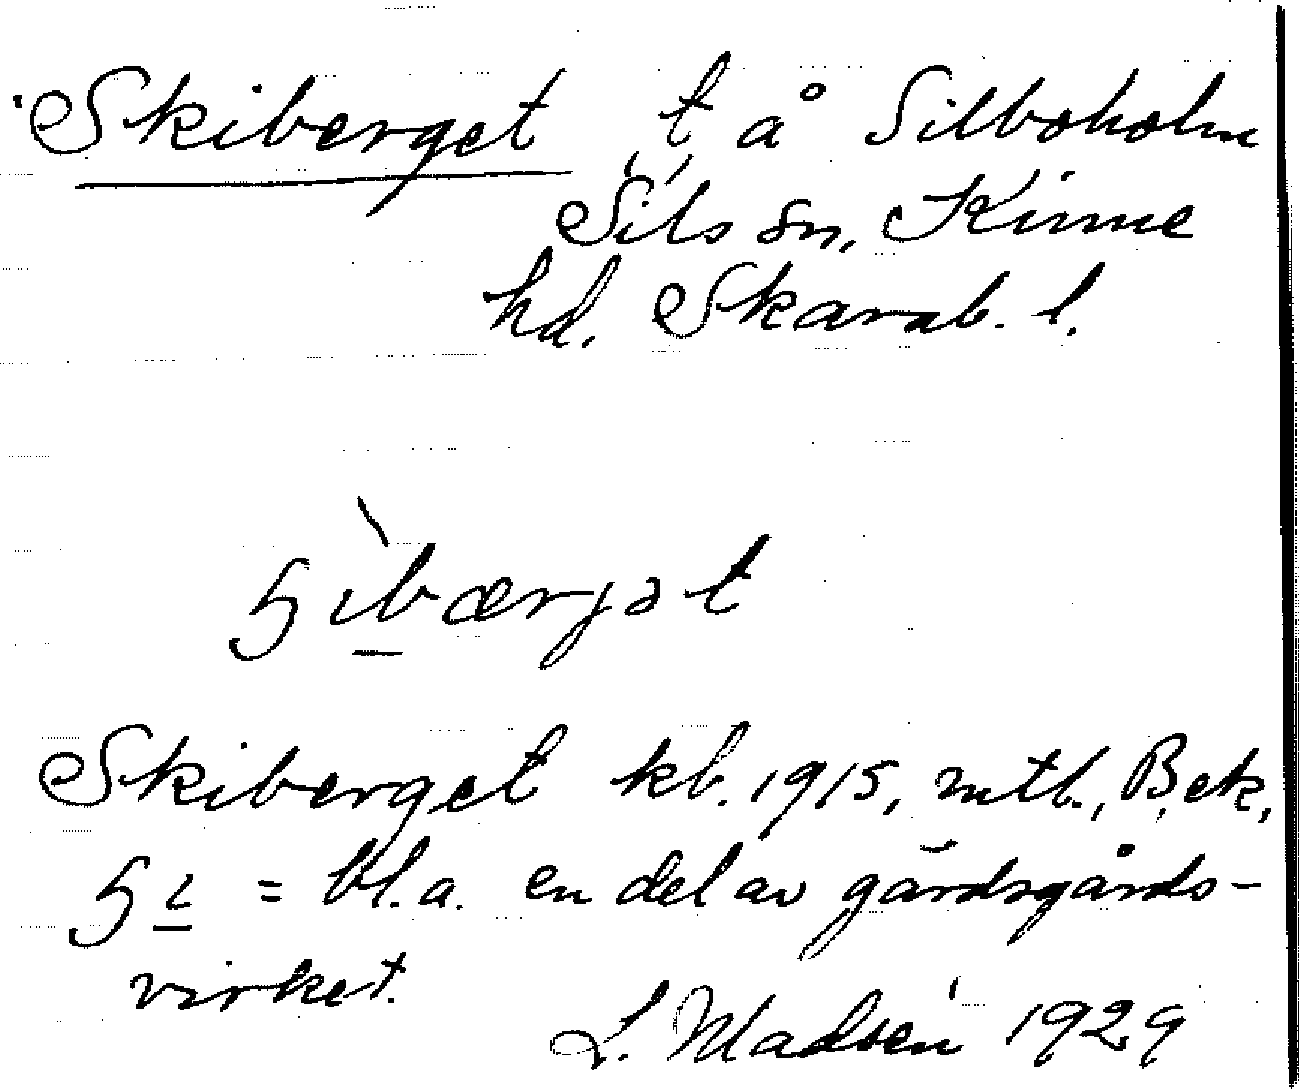 Skiberget t å Silboholm
Sils sn, Kinne
hd. Skarab. l.
ɧ ìbærjət
Skiberget kb. 1915, mtb., B, ek,
ɧ i = bl.a. en del av gärdsgårds-
virket.
L. Madsén 1929